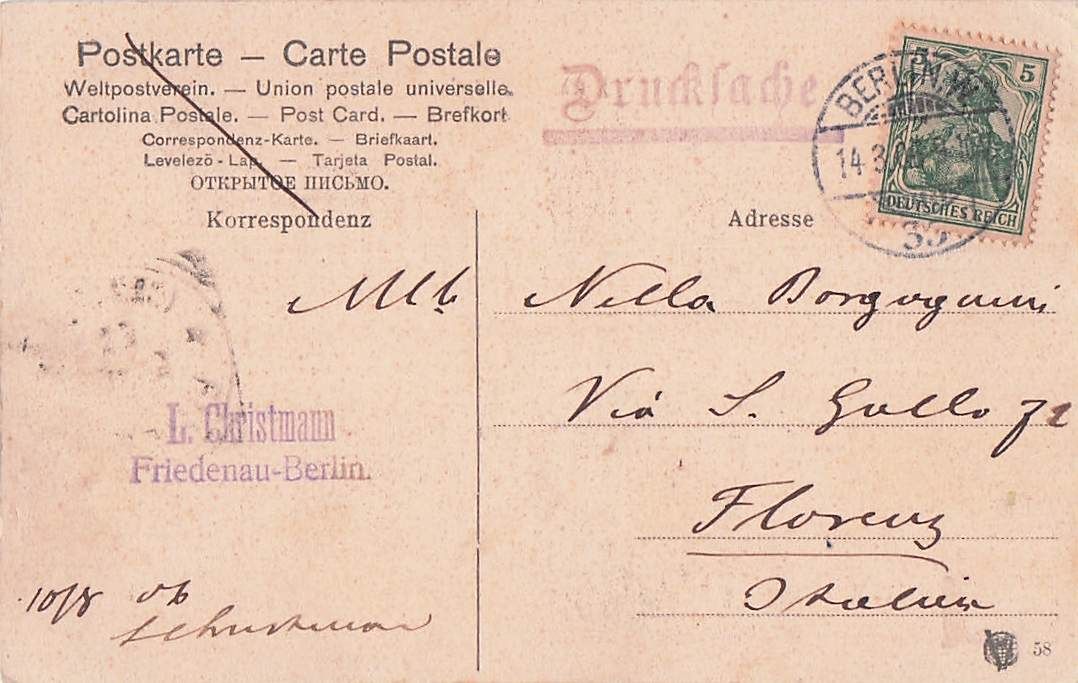 Postkarte — Carte Postale
Weltpostverein. — Union postale universelle.
Cartolina Postale. — Post Card. — Brefkort
Correspondenz-Karte. — Briefkaart.
Levelező-Lap. — Tarjeta Postal.
ОТКРЫТОЕ ПИСЬМО.
Korrespondenz
Drucksache
BERLIN.W.
14.3.
35
5 5
DEUTSCHES REICH
Adresse
L. Christmann
Friedenau-Berlin.
10/8 06
Christmann
Nella Borgognini
Via S. Gallo 71
Florenz
Italien
58